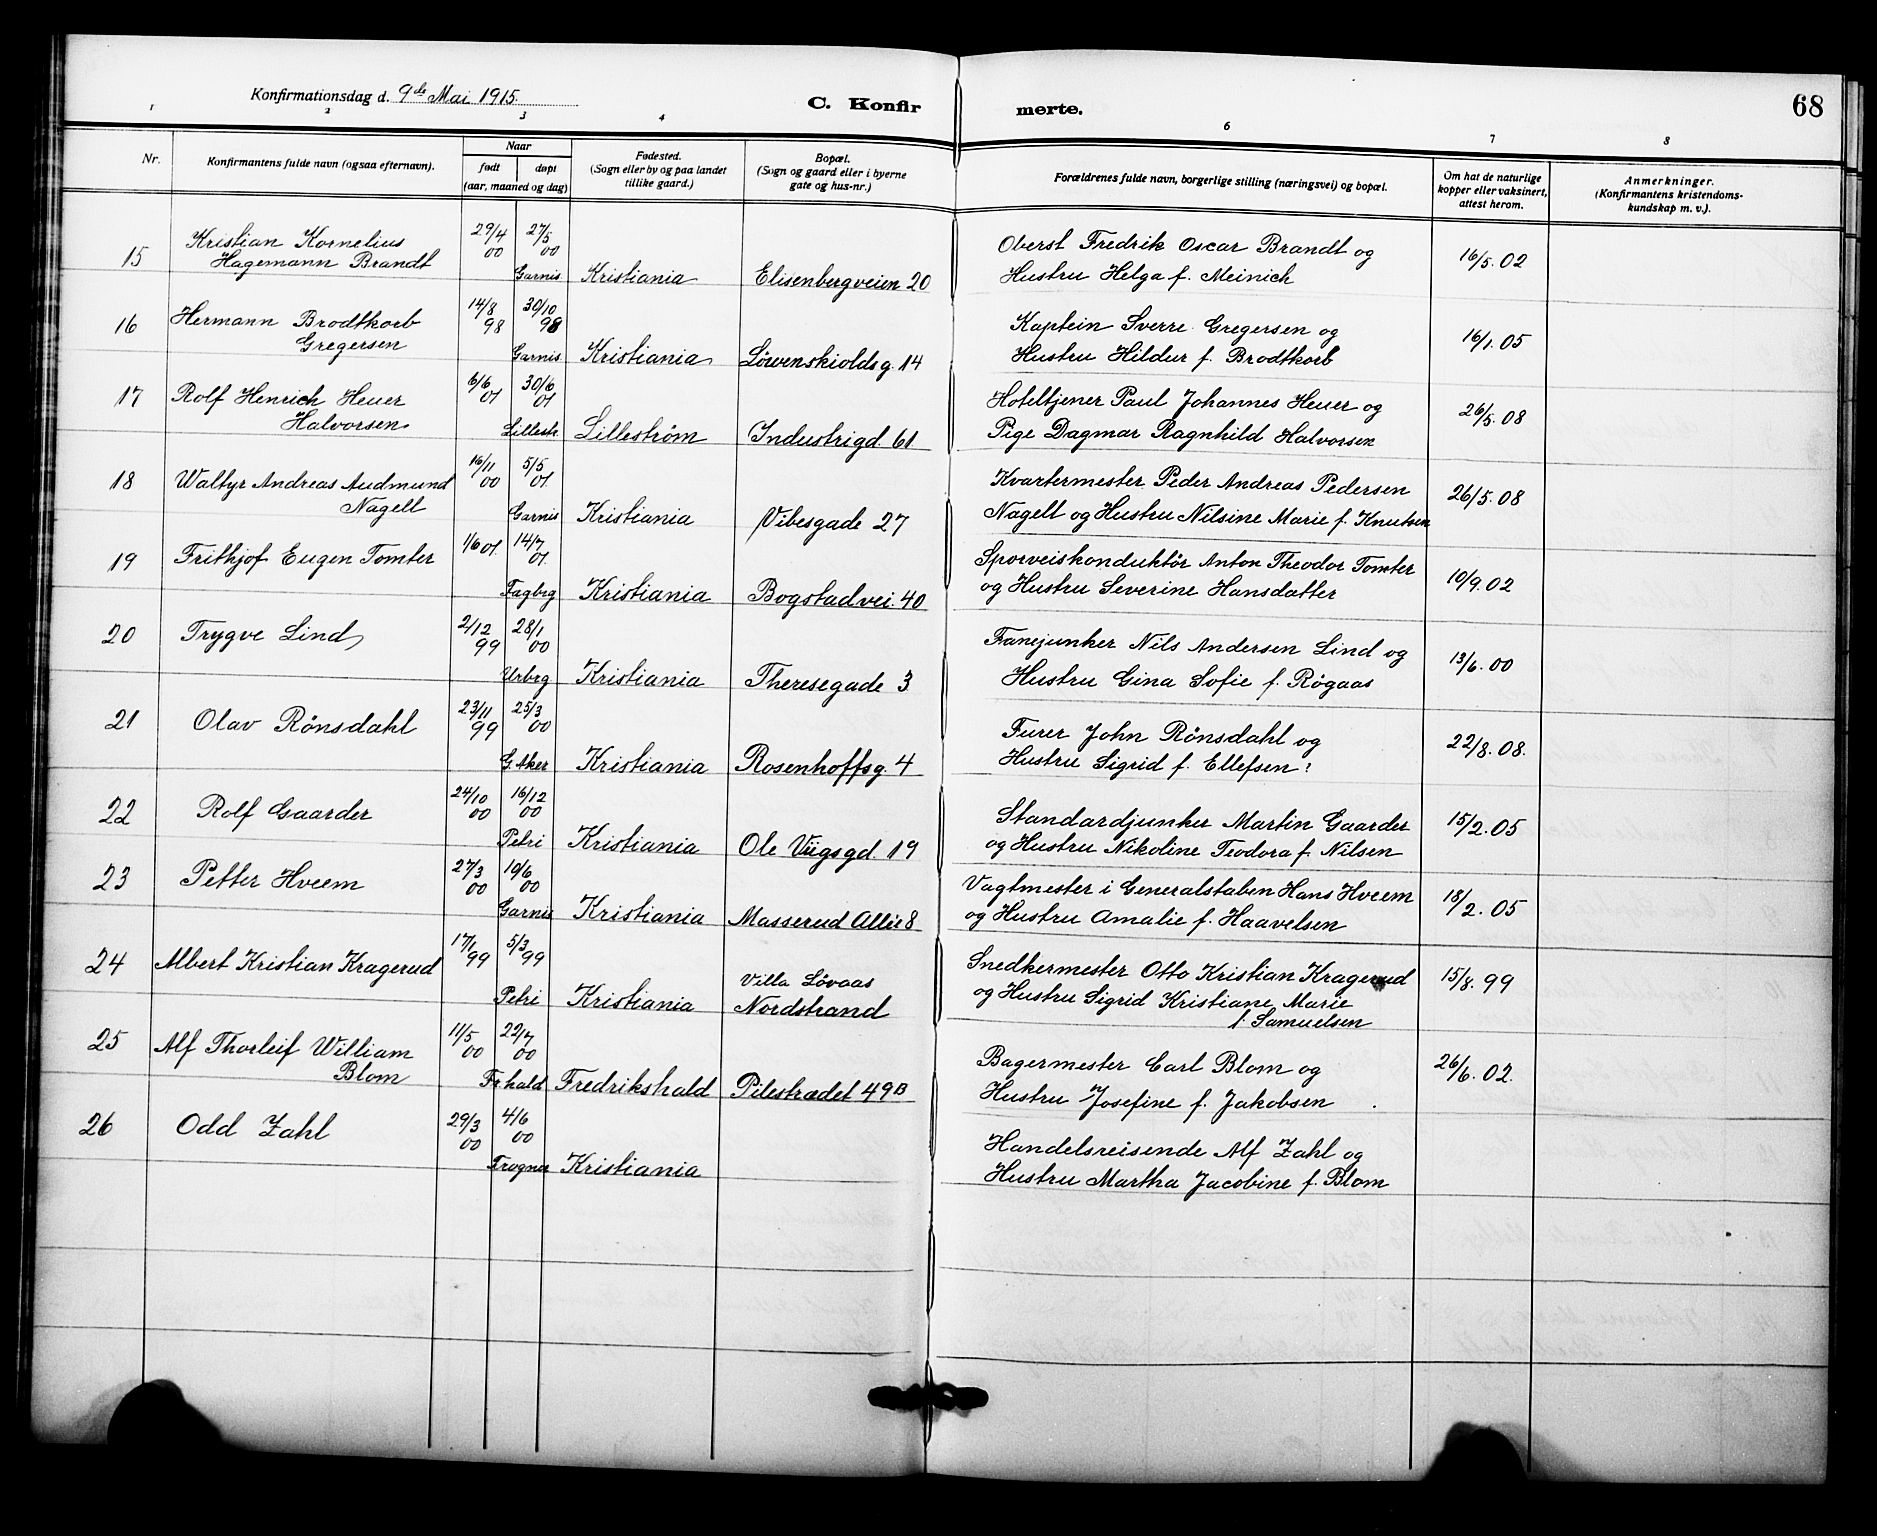 Konfirmationsdag d. 9de Mai 1915.
C. Konfir merte.
68
1 2 3 4 6 7 8
Nr. Konfirmantens fulde navn (ogsaa efternavn). Naar født døpt (aar, maaned og dag) Fødested. (Sogn eller by og paa landet tillike gaard.) Bopæl. (Sogn og gaard eller i byerne gate og hus-nr.) Forældrenes fulde navn, borgerlige stilling (næringsvei) og bopæl. Om hat de naturlige kopper eller vaksinert, attest herom. Anmerkninger. (Konfirmantens kristendoms-kundskap m. v.).
15 Kristian Kornelius 29/4 00 27/5 00 Oberst Fredrik Oscar Brandt og 16/5. 02
Hagemann Brandt Garnis Kristiania Elisenbergveien 20 Hustru Helga f. Meinich
16 Hermann Brodtkorb 14/8 98 30/10 98 Kaptein Sverre Gregersen og 16/1. 05
Gregersen Garnis Kristiania Løvenskioldsg. 14 Hustru Hildur f. Brodtkorb
17 Rolf Henrich Heuer 6/6 01 30/6 01 Hoteltjener Paul Johannes Heuer og 26/5. 08
Halvorsen Lillestr. Lillestrøm Industrigd. 61 Pige Dagmar Ragnhild Halvorsen
18 Waltyr Andreas Audmund 16/11 00 5/5 01. Kvartermester Peder Andreas Pedersen 26/5. 08
Nagell Garnis Kristiania Vibesgade 27 Nagell og Hustru Nilsine Marie f. Knutsen
19 Frithjof Eugen Tomter 1/6 01. 14/7 01. Sporveiskonduktør Anton Theodor Tomter 10/9. 02
Fagbrg Kristiania Bogstadvei. 40 og Hustru Severine Hansdatter
20 Trygve Lind 2/12 99 28/1 00 Fanejunker Nils Andersen Lind og 13/6. 00
Urbrg Kristiania Theresegade 3 Hustru Gina Sofie f. Røgaas
21 Olav Rönsdahl 23/11 99 25/3 00 Furer John Rönsdahl og 22/8. 08.
G. Aker Kristiania Rosenhoffsg. 4 Hustru Sigrid f. Ellefsen
22 Rolf Gaarder 24/10 00 16/12 00 Standardjunker Martin Gaarder 15/2. 05
Petri Kristiania Ole Viigsgd. 19 og Hustru Nikoline Teodora f. Nilsen
23 Petter Hveem 27/3 00 10/6 00 Vagtmester i Generalstaben Hans Hveem 18/2. 05
Garnis Kristiania Masserud Allé 8 og Hustru Amalie f. Haavelsen
24 Albert Kristian Kragerud 17/1 99 5/3 99 Villa Løvaas Snedkermester Otto Kristian Kragerud 15/8. 99
Petri Kristiania Nordstrand og Hustru Sigrid Kristiane Marie
f. Samuelsen
25 Alf Thorleif William 11/5 00 22/7 00 Bagermester Carl Blom og 26/6. 02.
Blom Frhald Fredrikshald Pilestrædet 49B Hustru Josefine f. Jakobsen
26 Odd Zahl 29/3 00 4/6 00 Handelsreisende Alf Zahl og
Frogner Kristiania Hustru Martha Jacobine f. Blom